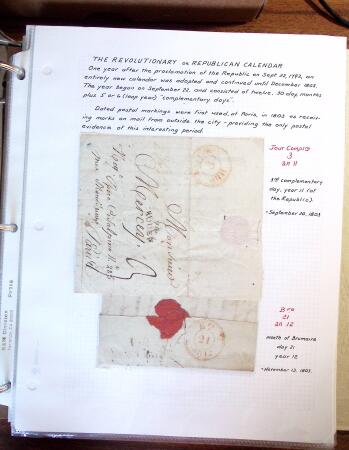 THE REVOLUTIONARY OR REPUBLICAN CALENDAR
One year after the proclamation of the Republic on Sept 22, 1792, an
entirely new calendar was adopted and continued until December 1805.
The year began on September 22, and consisted of twelve, 30 day, months
plus 5 or 6 (leap year) "complementary days".
Dated postal markings were first used, at Paris, in 1803 as receiv-
ing marks on mail from outside the city - providing the only postal
evidence of this interesting period.
Jour Compre
3
an 11
3rd complementary
day, year 11 (of
the Republic).
- September 20, 1803
Monsieur
à Paris
Bre
21
an 12
month of Brumaire
day 21
year 12
- November 13, 1803
21